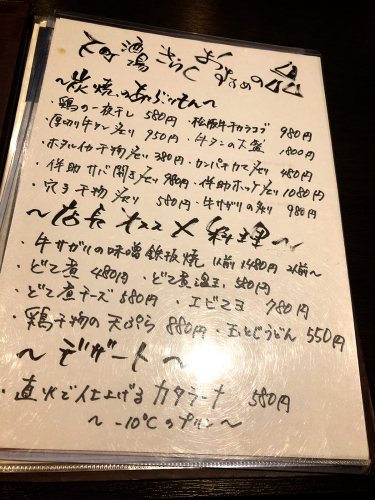 酒場 きらく おすすめの品
〜炭焼、あぶりもん〜
・鶏の一夜干し 580円 ・松阪牛チカラコブ 980円
・厚切り牛タン炙り 950円 ・牛タンの大盤 1800円
・ホタルイカ干物炙り 380円 ・カンパチカマ炙り 480円
・伴助 サバ開き炙り 980円 ・伴助ホッケ炙り 1080円
・穴子干物炙り 580円 ・牛サガリの炙り 980円
〜店長オススメ料理〜
・牛サガリの味噌鉄板焼 1人前 1480円 2人前〜
・どて煮 480円 ・どて煮温玉 580円
・どて煮チーズ 580円 ・エビマヨ 780円
・鶏干物の天ぷら 880円 ・玉とじうどん 550円
〜デザート〜
・直火で仕上げる カタラーナ 580円
〜-10℃のプリン〜